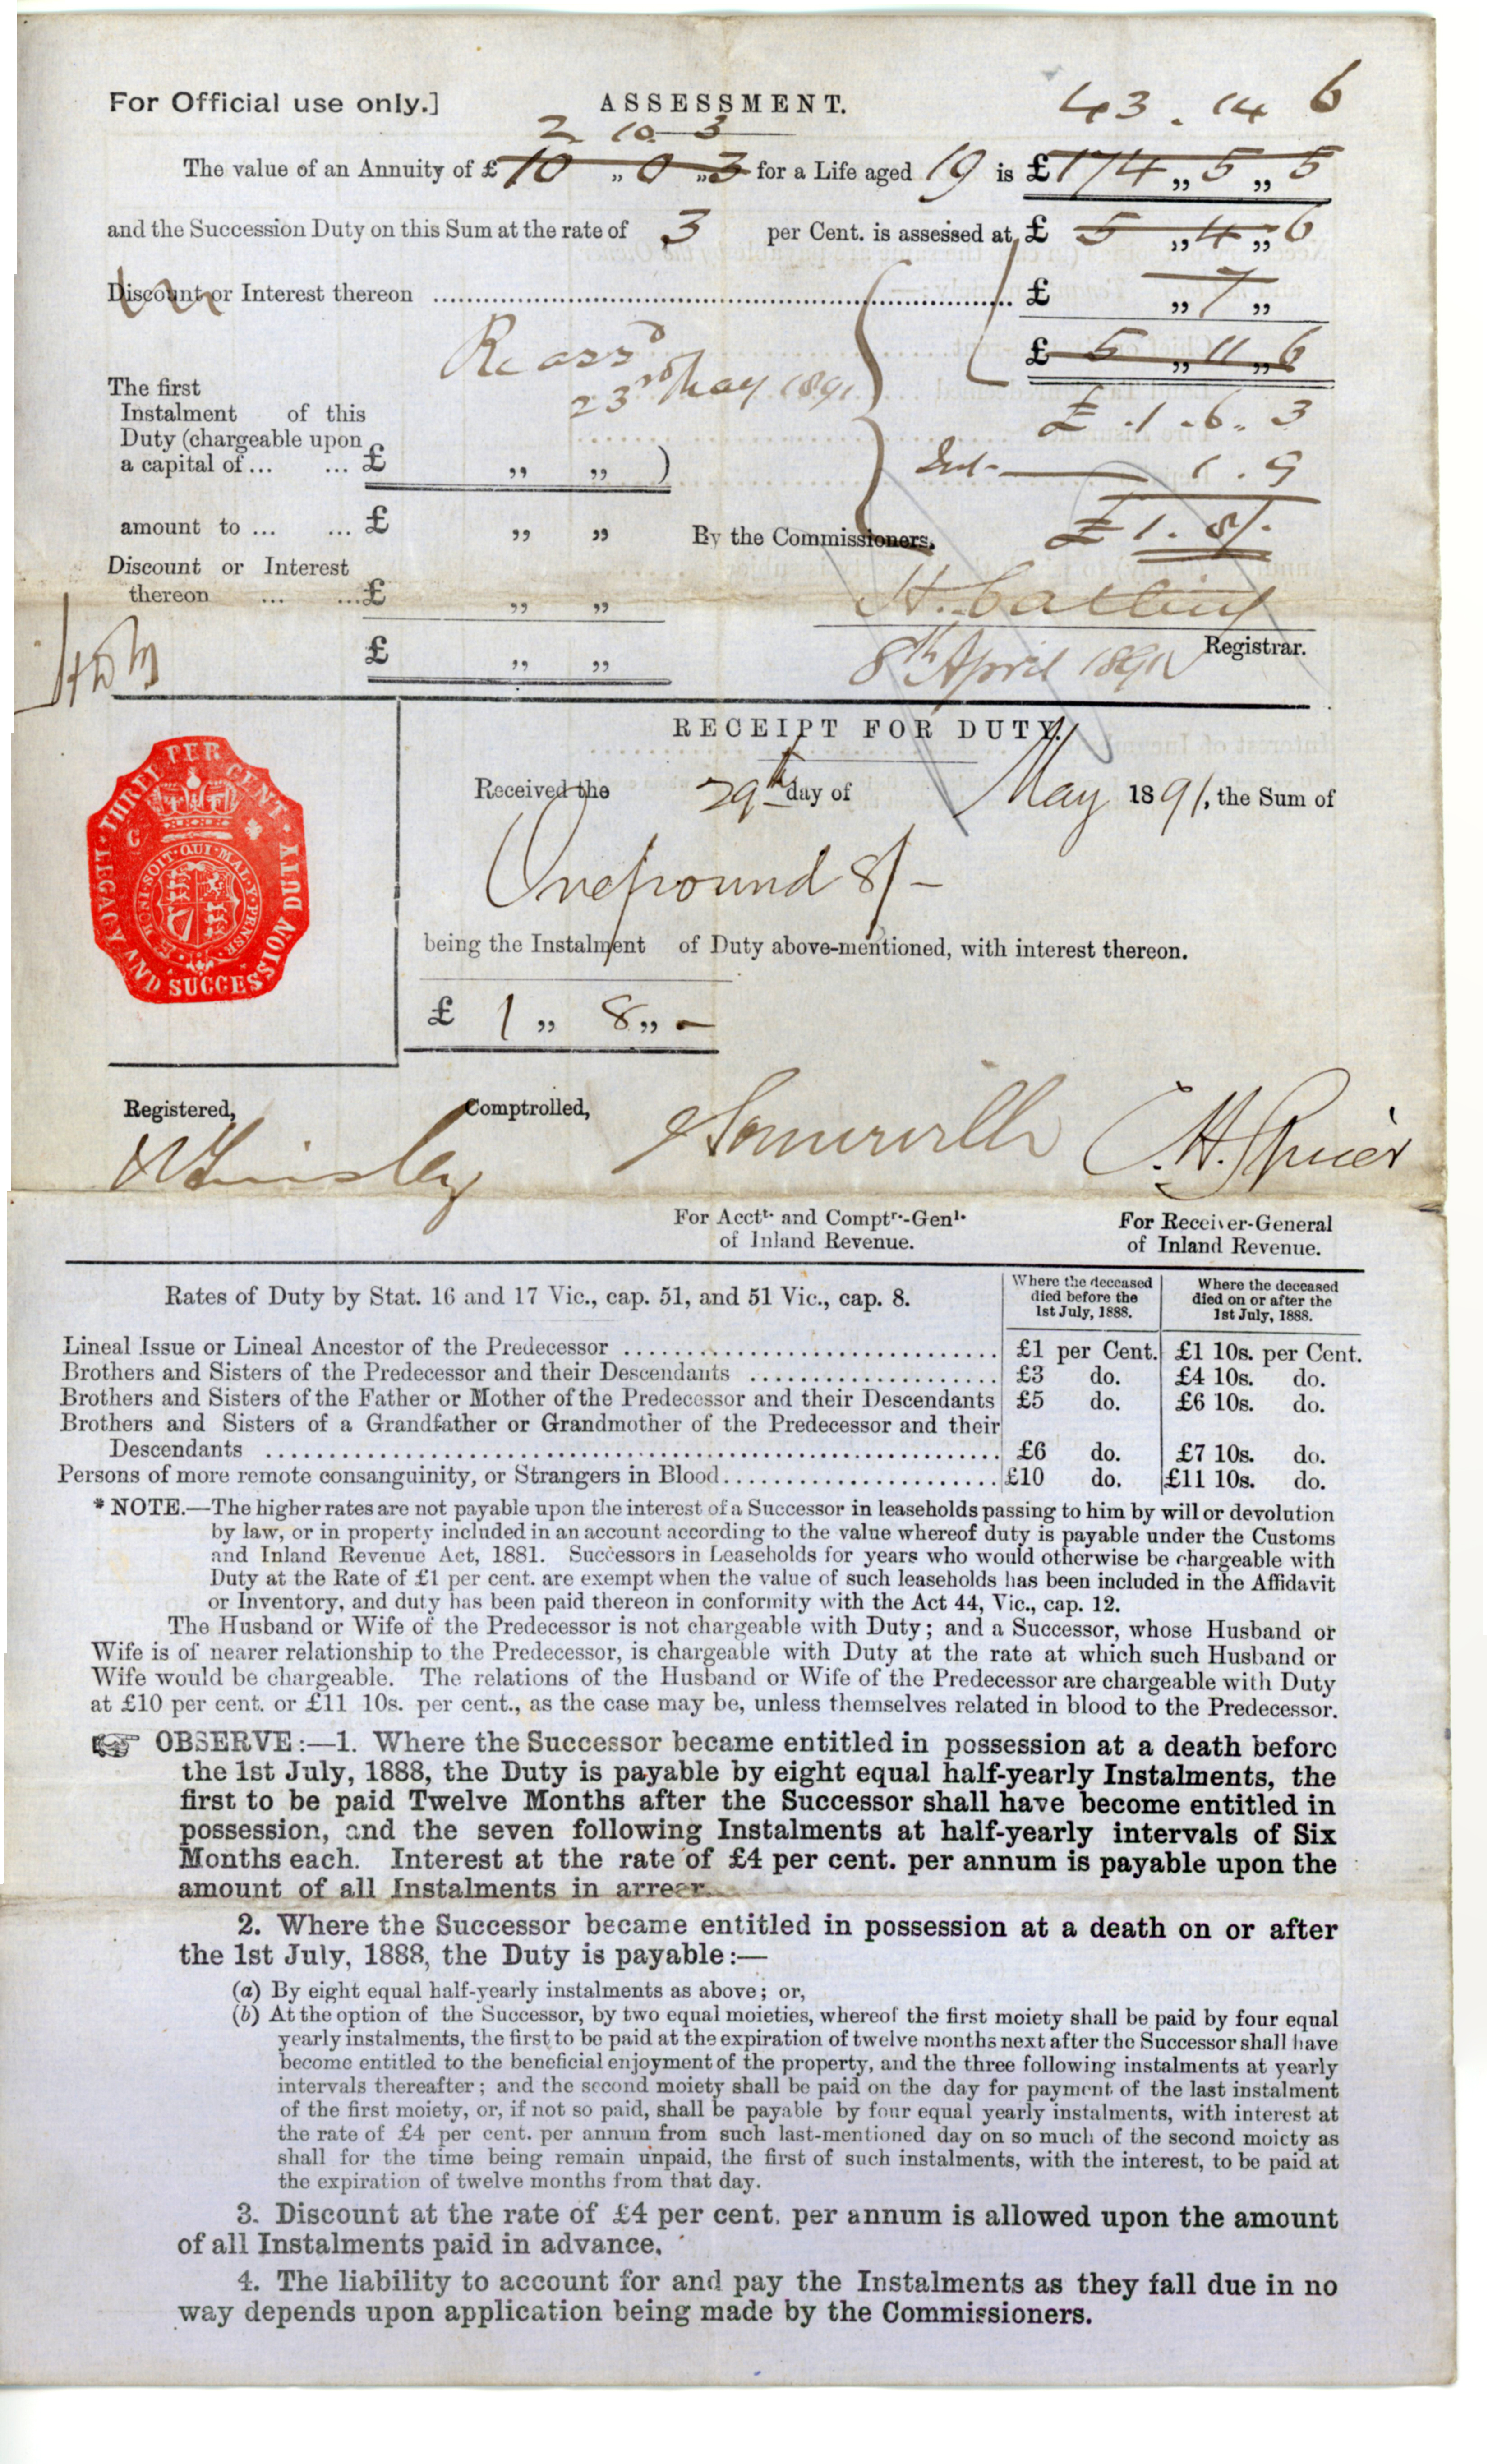 For Official use only.] ASSESSMENT. 43 . 14 6
2 10 3
The value of an Annuity of £ 10 „ 0 „ 3 for a Life aged 19 is £ 174 „ 5 „ 5
and the Succession Duty on this Sum at the rate of 3 per Cent. is assessed at £ 5 „ 4 „ 6
Discount or Interest thereon ........ £ „ 7 „
£ 5 „ 11 „ 6
Re assd
23rd May 1891
£ . 1 . 6 . 3
Int - 1 . 9
£ 1 . 8/-
The first
Instalment of this
Duty (chargeable upon
a capital of... ... £ „ „ )
amount to ... ... £ „ „ By the Commissioners.
Discount or Interest
thereon ... ...£ „ „
£ „ „ Registrar.
8th April 1891
RECEIPT FOR DUTY.
Received the 29th day of May 1891, the Sum of
One pound 8/-
being the Instalment of Duty above-mentioned, with interest thereon.
£ 1 „ 8 „ -
THREE PER CENT · LEGACY AND SUCCESSION DUTY
HONI·SOIT·QUI·MAL·Y·PENSE
C
Registered, Comptrolled, Somerville
For Acctt. and Comptr.-Genl. For Receiver-General
of Inland Revenue. of Inland Revenue.
Rates of Duty by Stat. 16 and 17 Vic., cap. 51, and 51 Vic., cap. 8.
Where the deceased died before the 1st July, 1888. Where the deceased died on or after the 1st July, 1888.
Lineal Issue or Lineal Ancestor of the Predecessor ........ £1 per Cent. £1 10s. per Cent.
Brothers and Sisters of the Predecessor and their Descendants ........ £3 do. £4 10s. do.
Brothers and Sisters of the Father or Mother of the Predecessor and their Descendants £5 do. £6 10s. do.
Brothers and Sisters of a Grandfather or Grandmother of the Predecessor and their
Descendants ........ £6 do. £7 10s. do.
Persons of more remote consanguinity, or Strangers in Blood........ £10 do. £11 10s. do.
* NOTE.—The higher rates are not payable upon the interest of a Successor in leaseholds passing to him by will or devolution
by law, or in property included in an account according to the value whereof duty is payable under the Customs
and Inland Revenue Act, 1881. Successors in Leaseholds for years who would otherwise be chargeable with
Duty at the Rate of £1 per cent. are exempt when the value of such leaseholds has been included in the Affidavit
or Inventory, and duty has been paid thereon in conformity with the Act 44, Vic., cap. 12.
The Husband or Wife of the Predecessor is not chargeable with Duty; and a Successor, whose Husband or
Wife is of nearer relationship to the Predecessor, is chargeable with Duty at the rate at which such Husband or
Wife would be chargeable. The relations of the Husband or Wife of the Predecessor are chargeable with Duty
at £10 per cent. or £11 10s. per cent., as the case may be, unless themselves related in blood to the Predecessor.
☞ OBSERVE:—1. Where the Successor became entitled in possession at a death before
the 1st July, 1888, the Duty is payable by eight equal half-yearly Instalments, the
first to be paid Twelve Months after the Successor shall have become entitled in
possession, and the seven following Instalments at half-yearly intervals of Six
Months each. Interest at the rate of £4 per cent. per annum is payable upon the
amount of all Instalments in arrear.
2. Where the Successor became entitled in possession at a death on or after
the 1st July, 1888, the Duty is payable:—
(a) By eight equal half-yearly instalments as above; or,
(b) At the option of the Successor, by two equal moieties, whereof the first moiety shall be paid by four equal
yearly instalments, the first to be paid at the expiration of twelve months next after the Successor shall have
become entitled to the beneficial enjoyment of the property, and the three following instalments at yearly
intervals thereafter; and the second moiety shall be paid on the day for payment of the last instalment
of the first moiety, or, if not so paid, shall be payable by four equal yearly instalments, with interest at
the rate of £4 per cent. per annum from such last-mentioned day on so much of the second moiety as
shall for the time being remain unpaid, the first of such instalments, with the interest, to be paid at
the expiration of twelve months from that day.
3. Discount at the rate of £4 per cent. per annum is allowed upon the amount
of all Instalments paid in advance.
4. The liability to account for and pay the Instalments as they fall due in no
way depends upon application being made by the Commissioners.